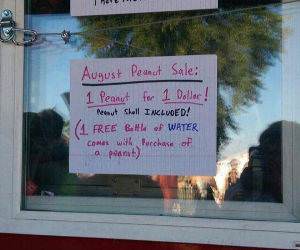 August Peanut Sale:
1 Peanut for 1 Dollar!
Peanut Shell INCLUDED!
(1 FREE Bottle of WATER
comes with Purchase of
a peanut)